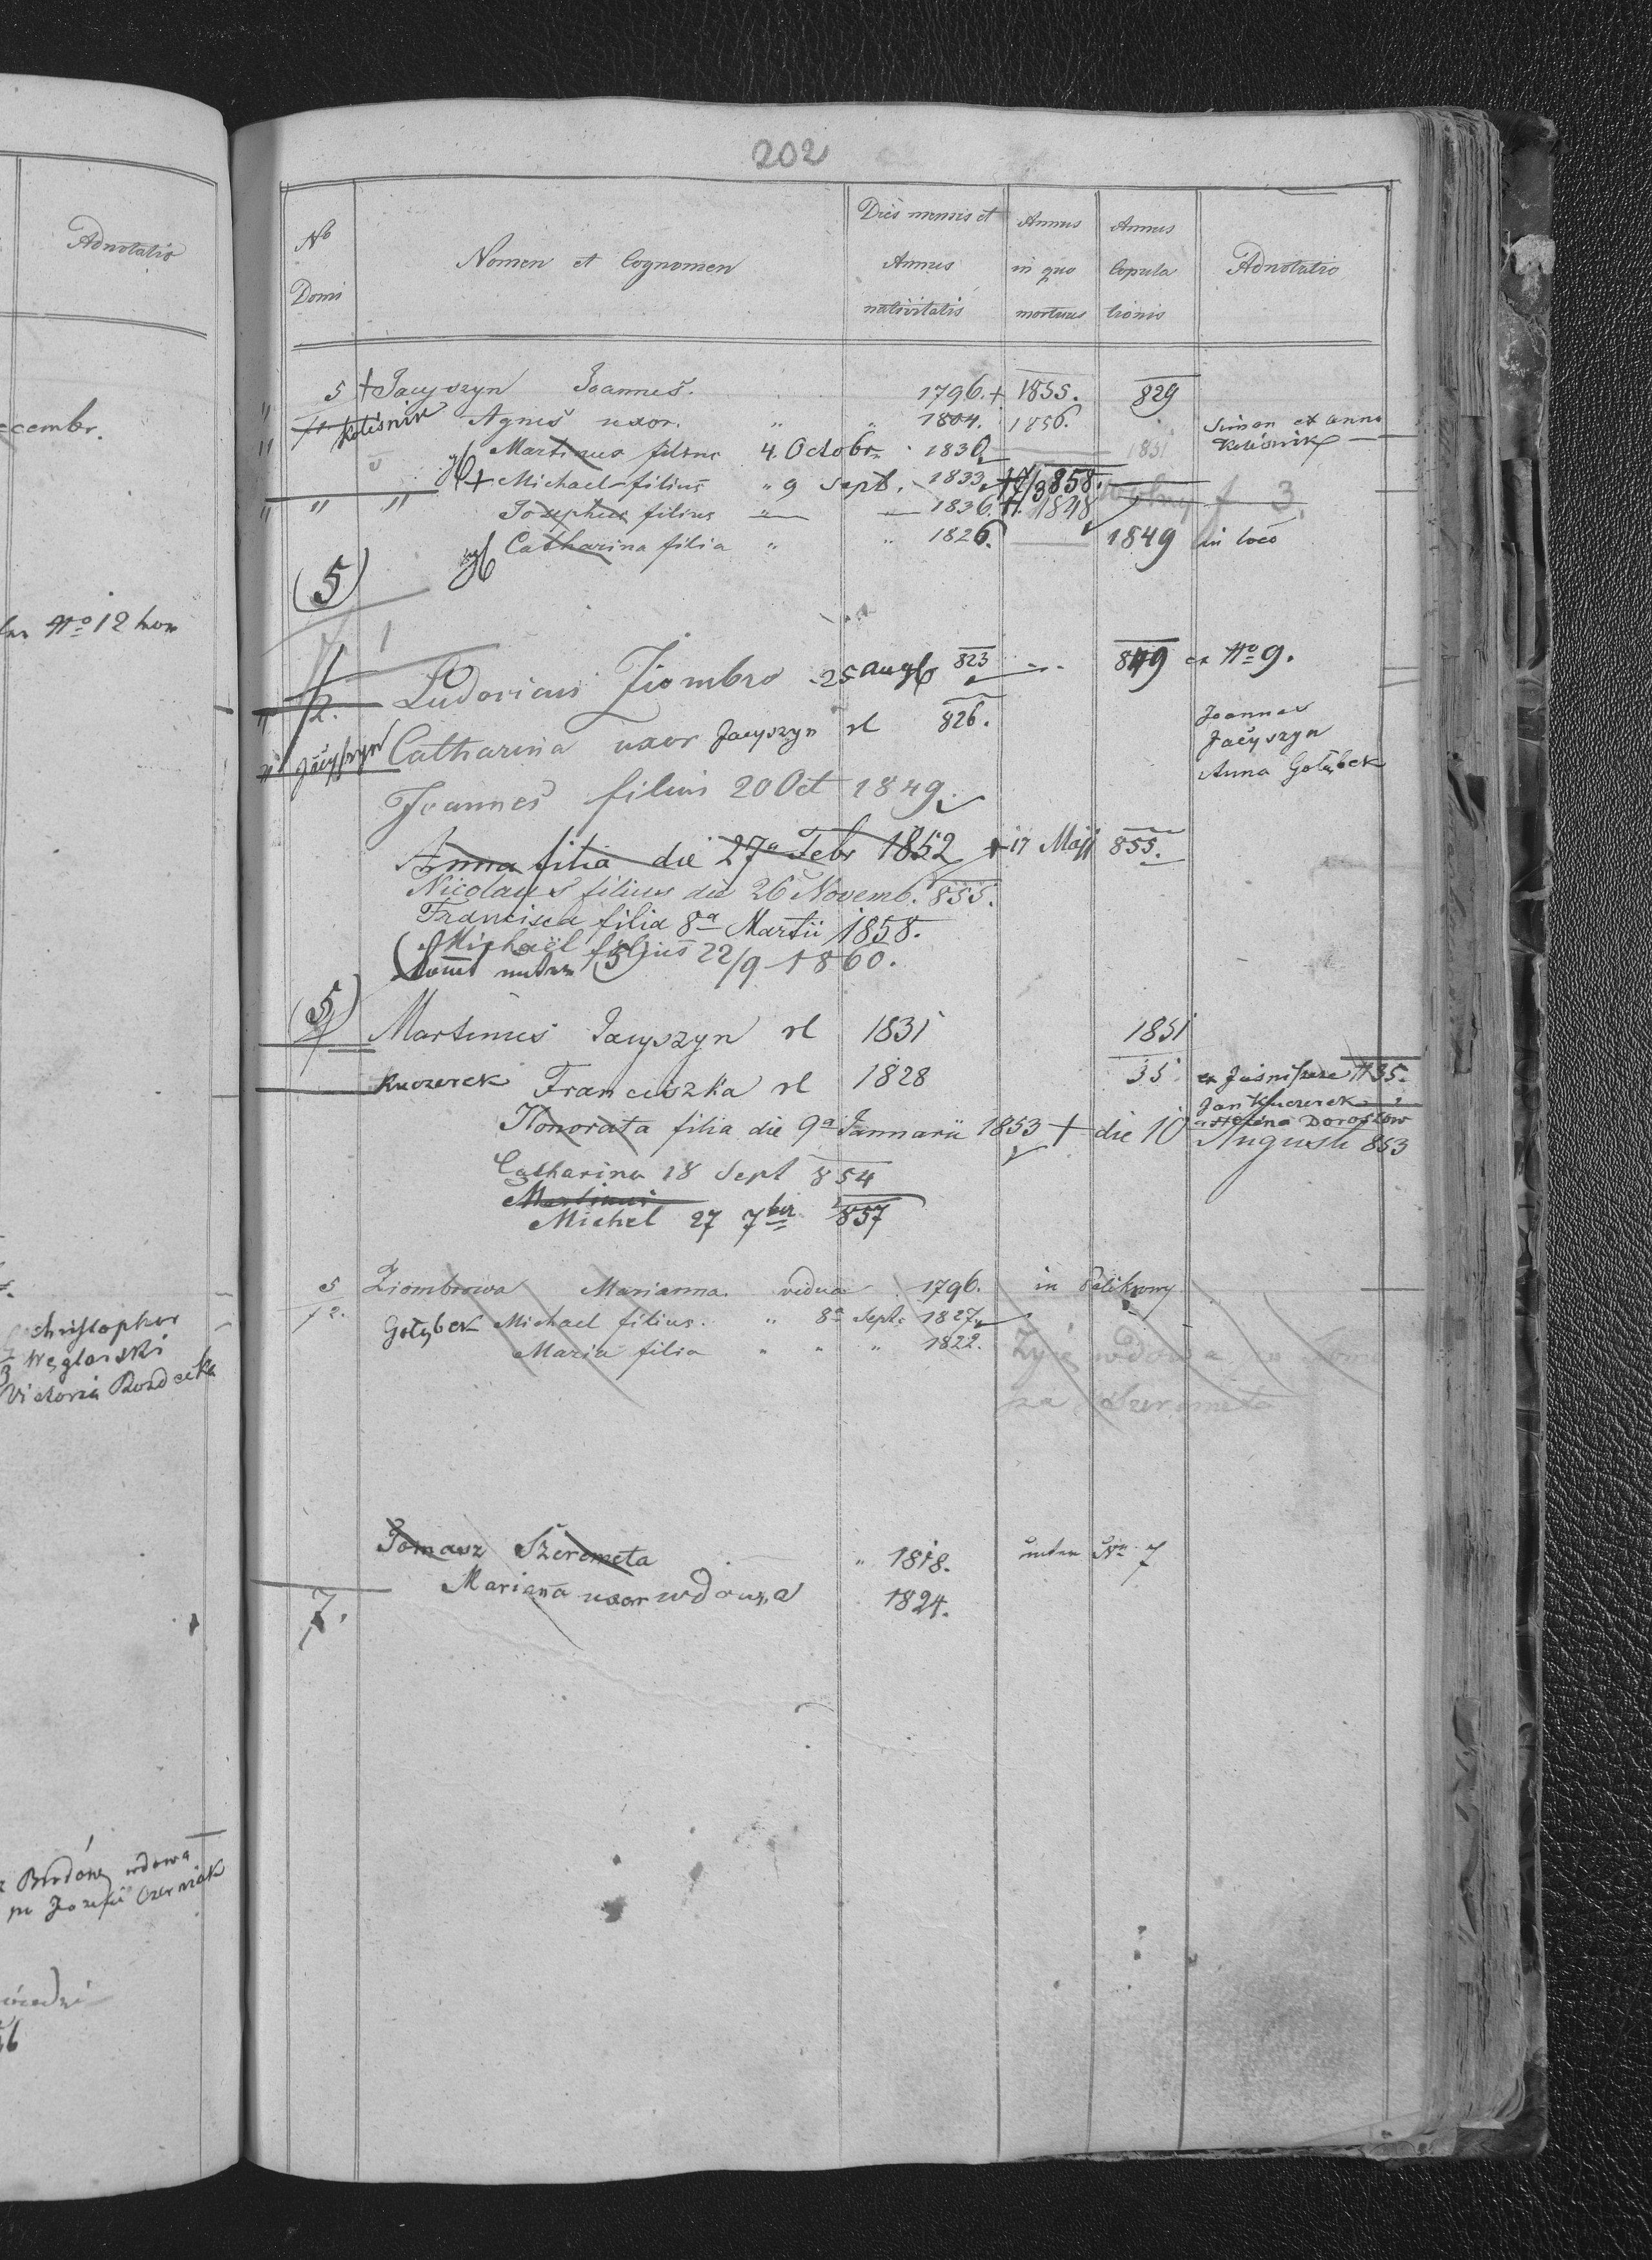 202
Adnotatio
No Domi
Nomen et Cognomen
Dies mensis et Annus nativitatis
Annus in quo mortuus
Annus Copulationis
Adnotatio
5 + Jacyszyn Joannes. 1796. + 1855. 829
Kolisnik Agnes uxor. " " 1804. 1856. Simon et Anna
Martinus filius 4. Octobr. 1830 1851 Kolisnik
+ Michael filius " 9 Sept. 1833 858.
" " " Josephus filius " 1836. 1848 f 3.
Catharina filia " " 1826. 1849 in loco
(5)
ecembr.
No 12
1
12. Ludovicus Ziombro 25 aug 823 849 ex No 9.
Jacyszyn Catharina uxor Jacyszyn rl 826. Joannes
Jacyszyn
Anna Gołąbek
Joannes filius 20 Oct 1849.
Anna filia die 27a Febr 1852 + 17 Maji 855.
Nicolaus filius die 26 Novemb. 855.
Francisca filia 8a Martii 1858.
Michaël filius 22/9 1860.
(5)
(5) Martinus Jacyszyn rl 1831 1851
Kuczerek Franciszka rl 1828 35 ex No 35.
Jan Kuczerek
Honorata filia die 9a Januarii 1853 + die 10 Augusti 853
Catharina 18 Sept 854
Martinus
Michel 27 7bris 857
5 Ziombrowa Marianna vidua 1796. in
12. Gołąbek Michael filius. " 8a Sept. 1827.
Maria filia " " " 1822. Żyje wdowa po
za Szeremeta
Christophor
Węglarski
Victoria
Tomasz Szeremeta " 1818. unten No 7
Mariana uxor wdowa 1824.
7.
wdowa
po Czerniak